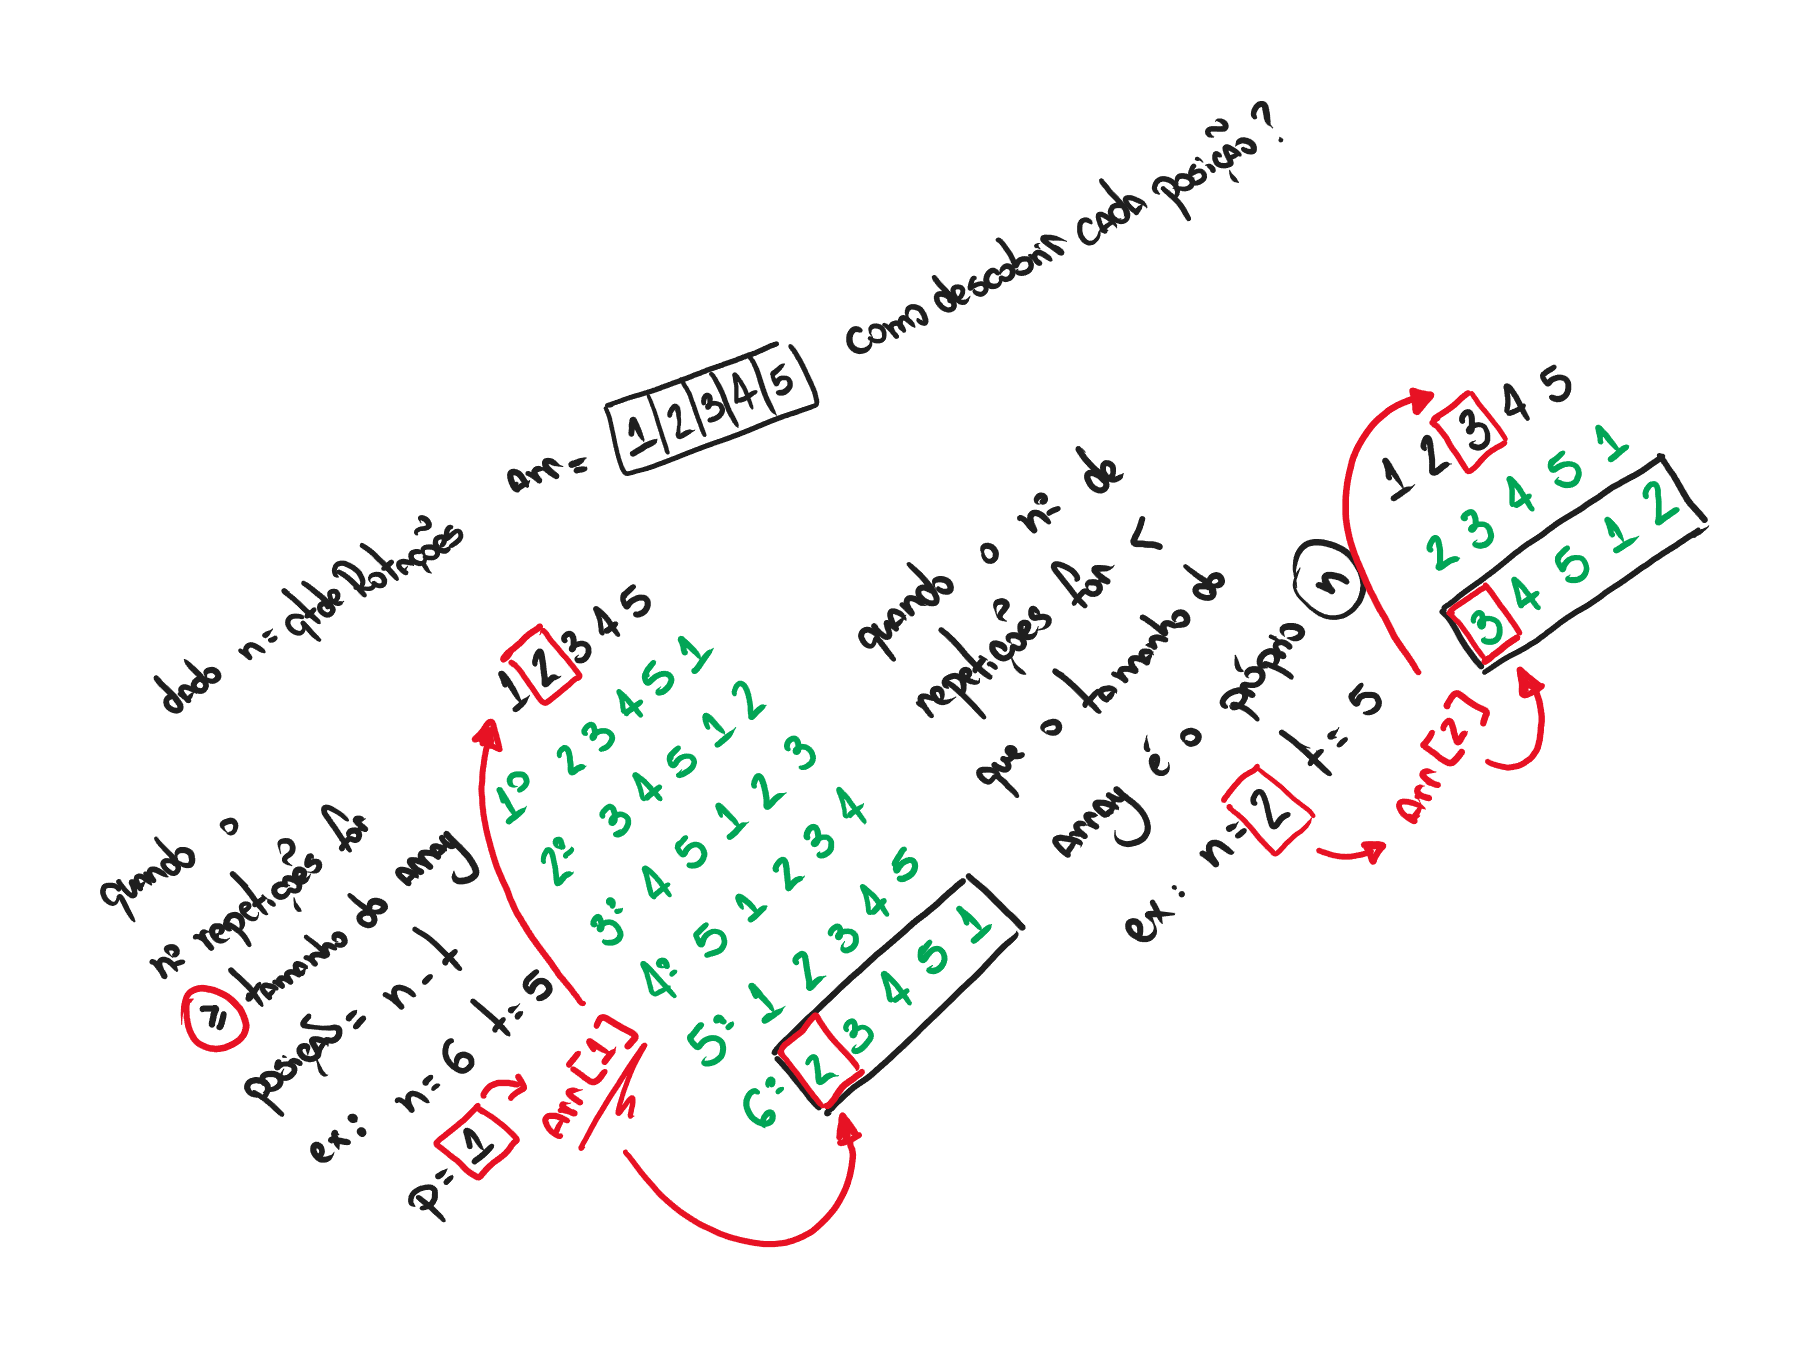 dado n= qtde Rotações arr= 1 2 3 4 5 como descobrir cada posição?
quando o
nº repetições for
≥ tamanho do array
posição= n - t
ex: n= 6 t= 5
P= 1
Arr[1]
1 2 3 4 5
1º 2 3 4 5 1
2º 3 4 5 1 2
3º 4 5 1 2 3
4º 5 1 2 3 4
5º 1 2 3 4 5
6º 2 3 4 5 1
quando o nº de
repetições for <
que o tamanho do
array é o próprio n
ex: n= 2 t= 5
Arr[2]
1 2 3 4 5
2 3 4 5 1
3 4 5 1 2